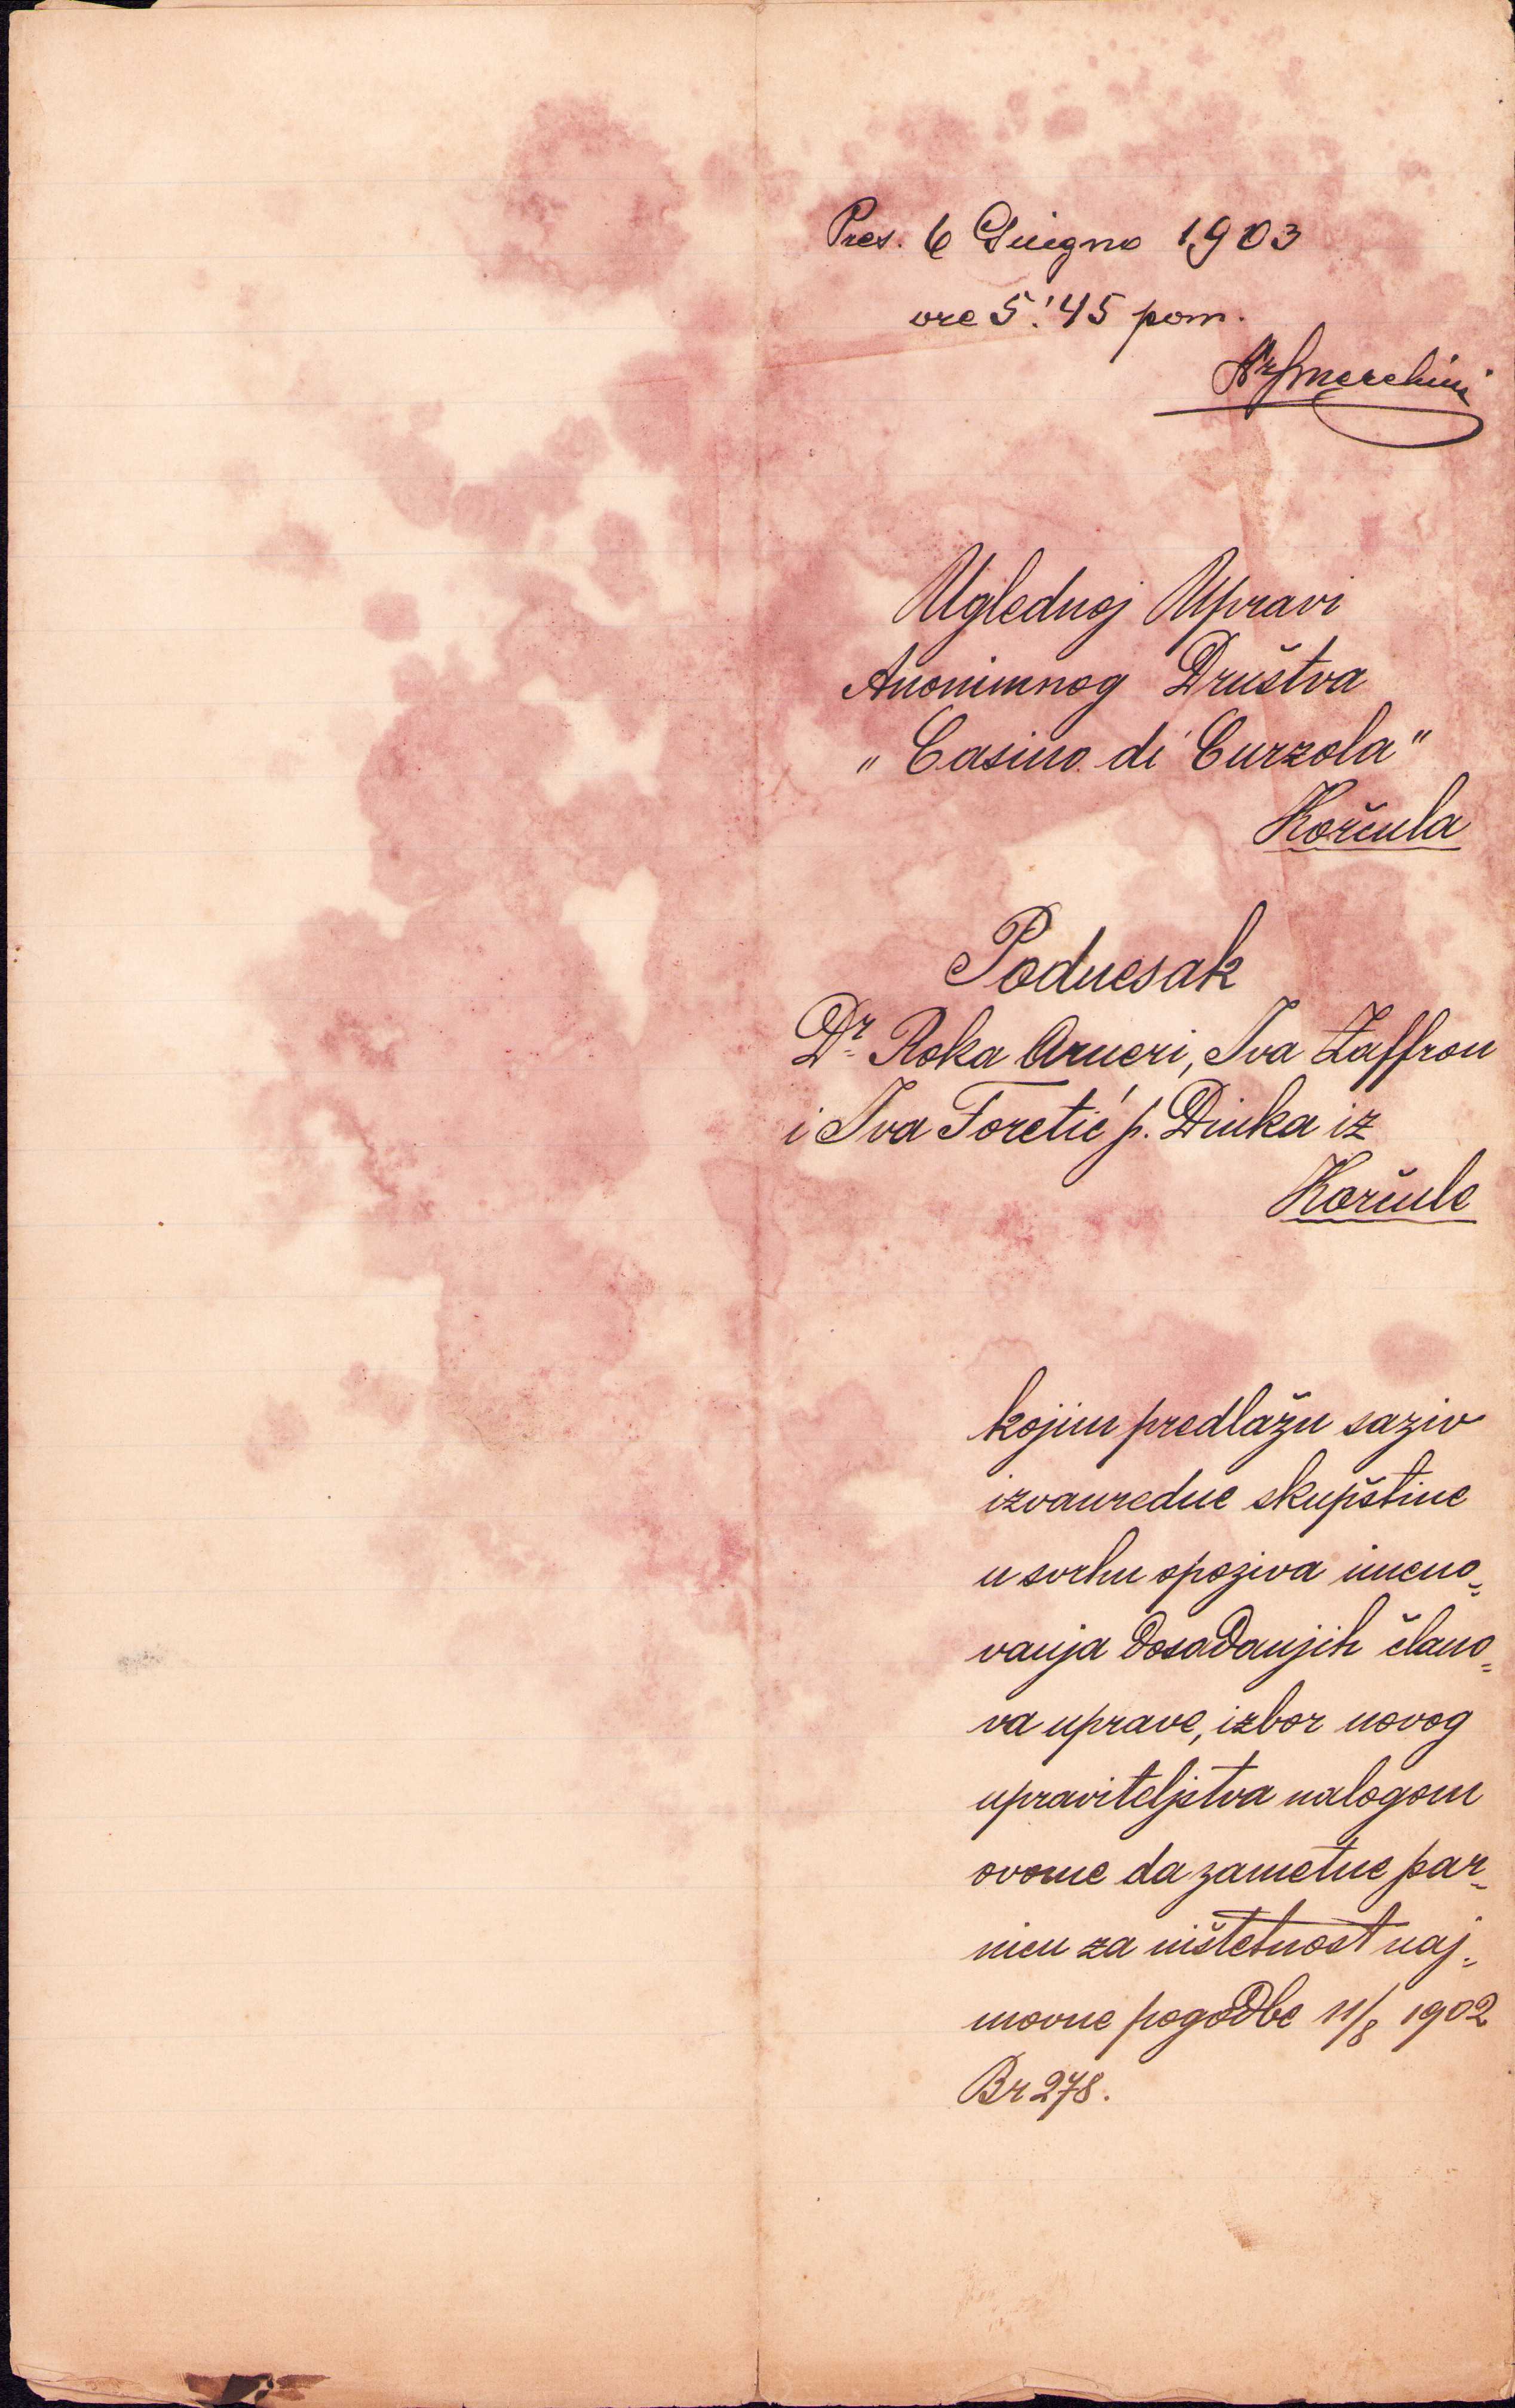 Pres. 6 Giugno 1903
ore 5:45 pom.
Dr Smerchinić
Uglednoj Upravi
Anonimnog Društva
„Casino di Curzola"
Korčula
Podnesak
Dr Roka Arneri, Iva Zaffron
i Iva Foretić p. Dinka iz
Korčule
kojim predlažu saziv
izvanredne skupštine
u svrhu opoziva imeno=
vanja dosadanjih člano=
va uprave, izbor novog
upraviteljstva nalogom
ovome da zametne par=
nicu za ništetnost naj=
movne pogodbe 11/8 1902
Br 278.